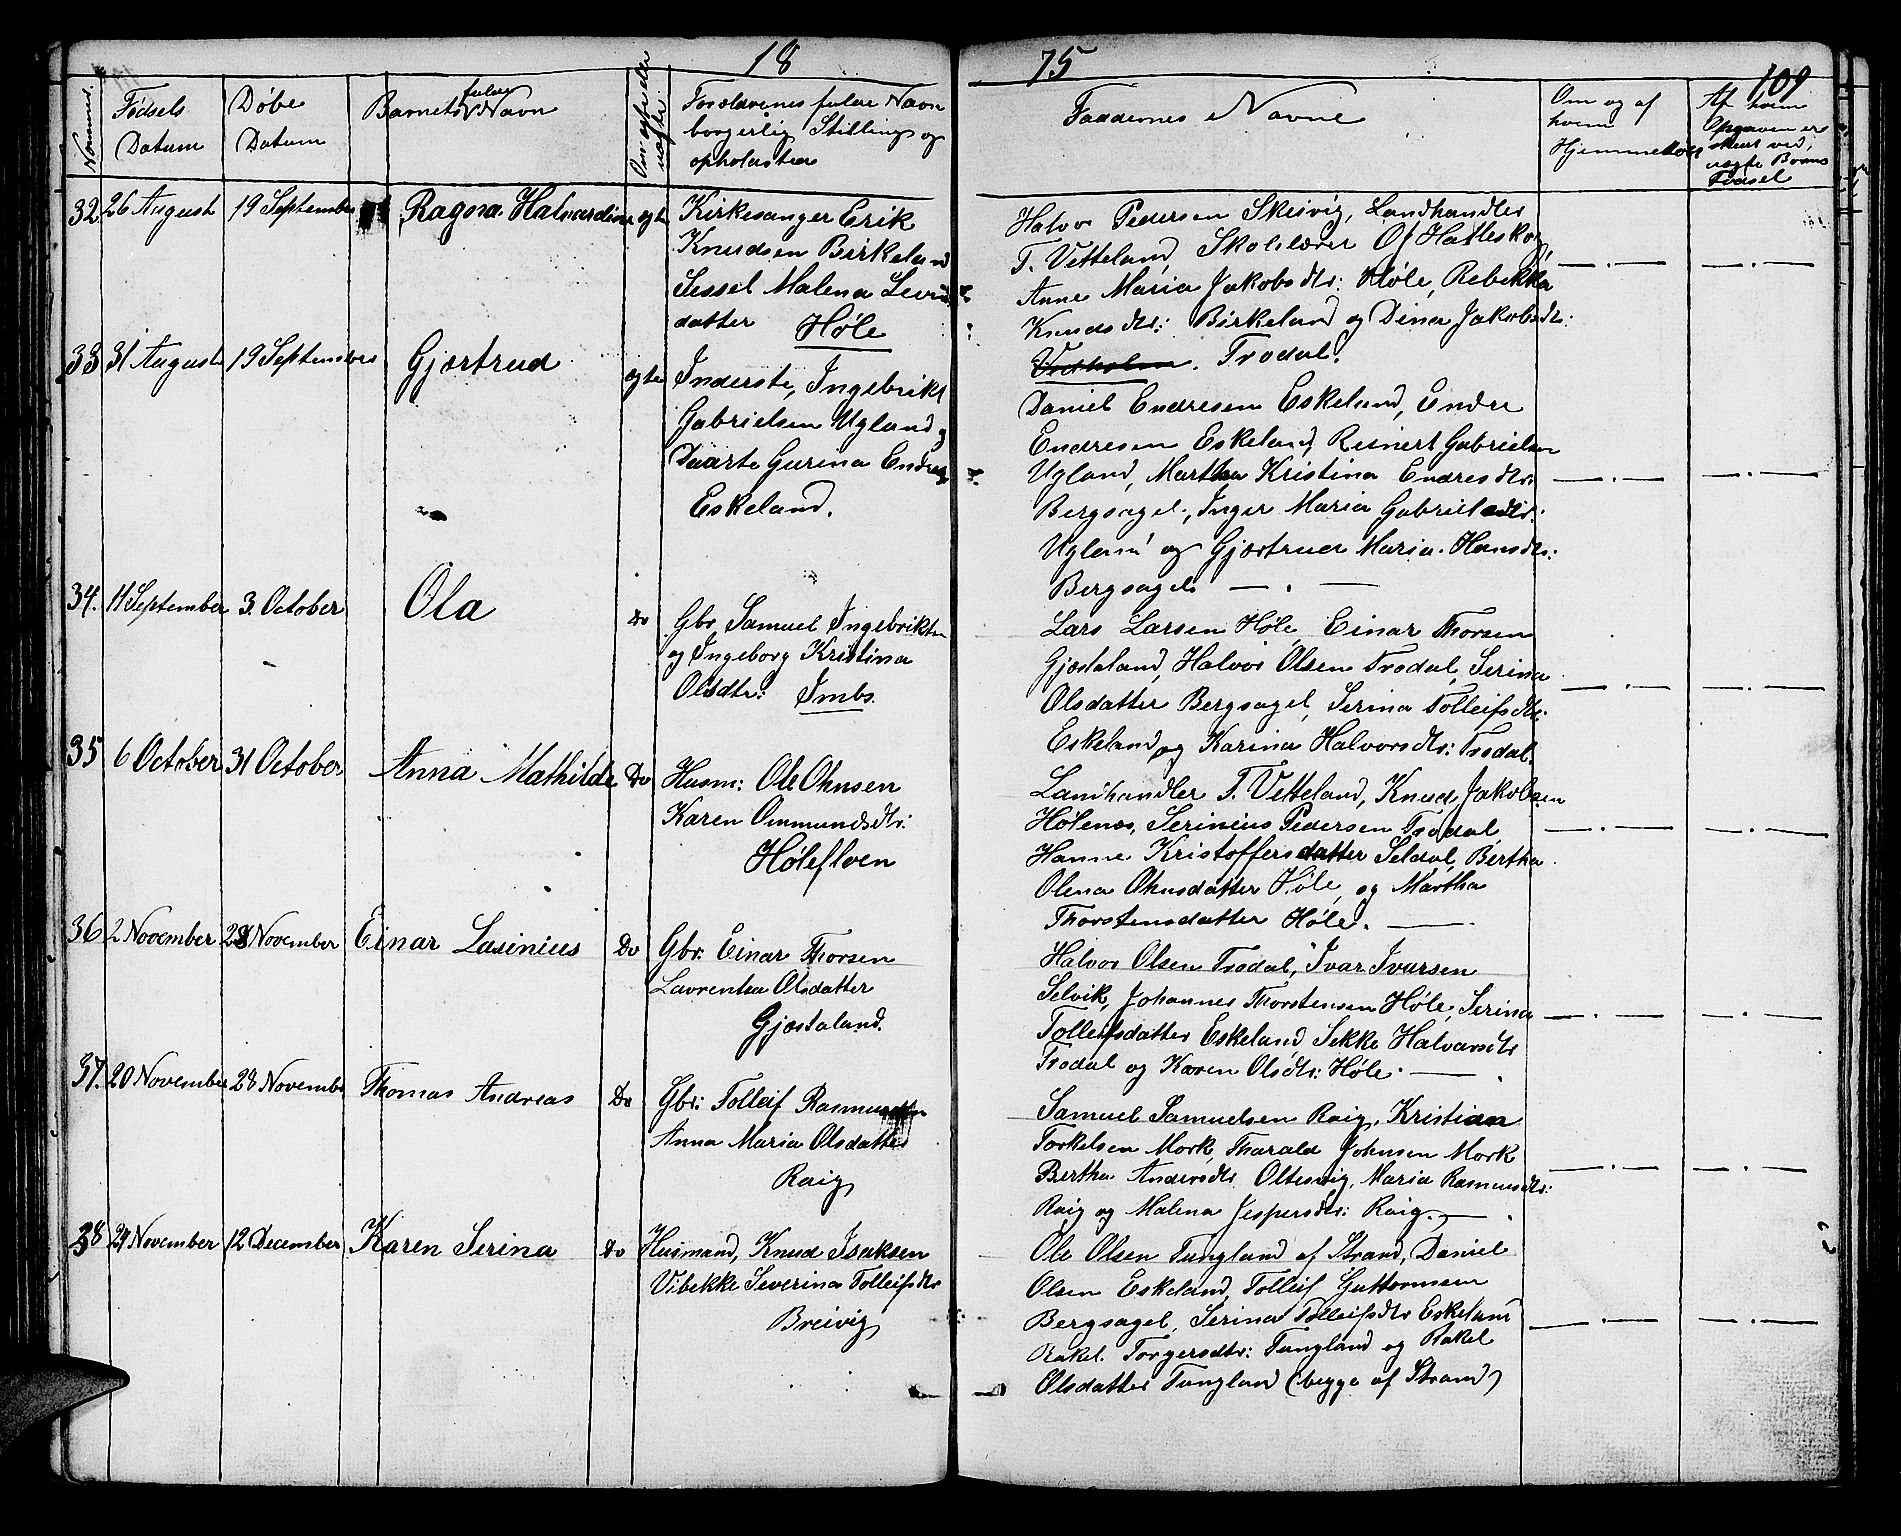 18
75
109
Nommer.
Fødsels
Datum
Døbe
Datum
Barnets fulde Navn
Om ægte eller
uægte.
Forældrenes fulde Navn
borgerlig Stilling og
opholdsted
Faddernes Navne
Om og af
hvem
Hjemmedøbt
Af hvem
Opgaven er
skeet ved,
uægte Barns
Fødsel
32 26 August 19 September Ragna Halvardine ægte Kirkesanger Erik
Knudsen Birkeland
Sessel Malena Sevrins
datter Høle
Halvor Pedersen Skeivig, Landhandler
T. Vetteland, Skolelærer O. Hatleskog,
Anne Maria Jakobsdtr: Høle, Rebekka
Knudsdtr: Birkeland og Dina Jakobsdtr:
Trodal.
33 31 August 19 September Gjærtrud ægte Inderste, Ingebrikt
Gabrielsen Ugland og
Daarte Gurina Endresd
Eskeland.
Daniel Endresen Eskeland, Endre
Endresen Eskeland, Reinert Gabrielsen
Ugland, Martha Kristina Endresdtr:
Bergsagel, Inger Maria Gabrielsdtr:
Ugland og Gjærtrud Maria Hansdtr:
Bergsagel —.—
34. 11 September 3. October Ola Do Gbr Samuel Ingebriktsen
og Ingeborg Kristina
Olsdtr: Imbs.
Lars Larsen Høle, Einar Thorsen
Gjæstaland, Halvor Olsen Trodal, Serina
Olsdatter Bergsagel, Serina Tolleifsdtr.
Eskeland og Karina Halvorsdtr: Trodal.
35 6 October 31 October Anna Mathilde Do Husm: Ole Ohnsen
Karen Ommundsdtr:
Høleflven
Landhandler T. Vetteland, Knud Jakobsen
Hølenæs, Serinius Pedersen Trodal,
Hanne Kristoffersdatter Seldal, Bertha
Olena Ohnsdatter Høle, og Martha
Thorstensdatter Høle. —
36 2 November 28 November Einar Lasinius Do Gbr: Einar Thorsen
Lavrentsa Olsdatter
Gjæstaland.
Halvor Olsen Trodal, Ivar Ivarsen
Selvik, Johannes Thorstensen Høle, Serina
Tolleifsdatter Eskeland, Sekke Halvarsdtr
Trodal og Karen Olsdtr: Høle. —
37. 20 November 28 November Thomas Andreas Do Gbr: Tolleif Rasmussen
Anna Maria Olsdatter
Raig
Samuel Samuelsen Raig, Kristian
Torkelsen Mork, Tharald Johnsen Mork
Bertha Andersdtr Oltesvig, Maria Rasmusdtr:
Raig og Malena Jespersdtr: Raig. —
38 29 November 12 December Karen Serina Do Husmand, Knud Isaksen
Vibekke Severina Tolleifsdtr
Breivig
Ole Olsen Tungland af Strand, Daniel
Olsen Eskeland, Tolleif Guttormsen
Bergsagel, Serina Tolleifsdtr Eskeland
Rakel Torgersdtr: Tungland og Rakel
Olsdatter Tungland (begge af Strand)